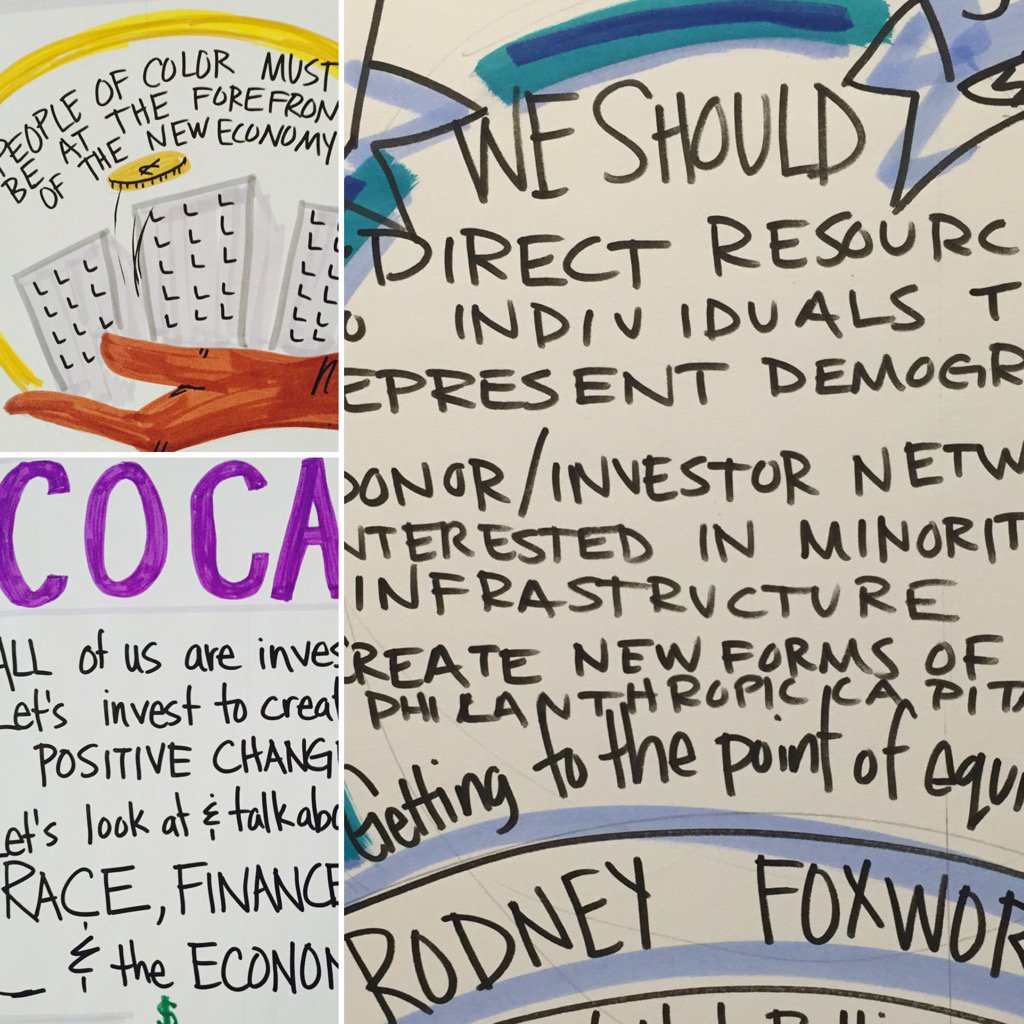 PEOPLE OF COLOR MUST
BE AT THE FOREFRON
OF THE NEW ECONOMY
COCA
ALL of us are inves
Let's invest to creat
POSITIVE CHANG
Let's look at & talk abo
RACE, FINANCE
& the ECONOM
$
WE SHOULD
DIRECT RESOURC
INDIVIDUALS T
EPRESENT DEMOGR
DONOR/INVESTOR NETW
NTERESTED IN MINORIT
INFRASTRUCTURE
CREATE NEW FORMS OF
PHILANTHROPIC CAPITA
Getting to the point of equi
RODNEY FOXWOR